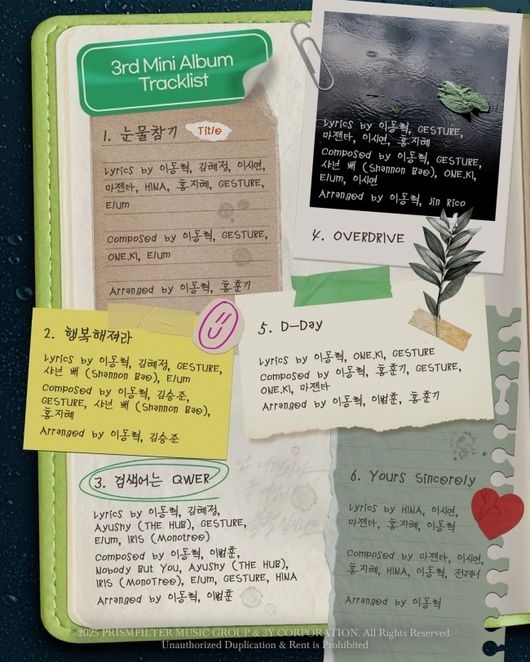 3rd Mini Album
Tracklist
1. 눈물참기 Title
Lyrics by 이동혁, 김혜정, 이시연,
마젠타, HINA, 홍지혜, GESTURE,
Elum
Composed by 이동혁, GESTURE,
ONE.KI, Elum
Arranged by 이동혁, 홍훈기
2. 행복해져라
Lyrics by 이동혁, 김혜정, GESTURE,
샤넌 배 (Shannon Bae), Elum
Composed by 이동혁, 김승준,
GESTURE, 샤넌 배 (Shannon Bae),
홍지혜
Arranged by 이동혁, 김승준
3. 검색어는 QWER
Lyrics by 이동혁, 김혜정,
Ayushy (THE HUB), GESTURE,
Elum, IRIS (MonoTree)
Composed by 이동혁, 이범훈,
Nobody But You, Ayushy (THE HUB),
IRIS (MonoTree), Elum, GESTURE, HINA
Arranged by 이동혁, 이범훈
Lyrics by 이동혁, GESTURE,
마젠타, 이시연, 홍지혜
Composed by 이동혁, GESTURE,
샤넌 배 (Shannon Bae), ONE.KI,
Elum, 이시연
Arranged by 이동혁, Jin Rico
4. OVERDRIVE
5. D-Day
Lyrics by 이동혁, ONE.KI, GESTURE
Composed by 이동혁, 홍훈기, GESTURE,
ONE.KI, 마젠타
Arranged by 이동혁, 이범훈, 홍훈기
6. Yours Sincerely
Lyrics by HINA, 이시연,
마젠타, 홍지혜, 이동혁
Composed by 마젠타, 이시연,
홍지혜, HINA, 이동혁, 전제니
Arranged by 이동혁
2025 PRISMFILTER MUSIC GROUP & 3Y CORPORATION. All Rights Reserved.
Unauthorized Duplication & Rent is Prohibited